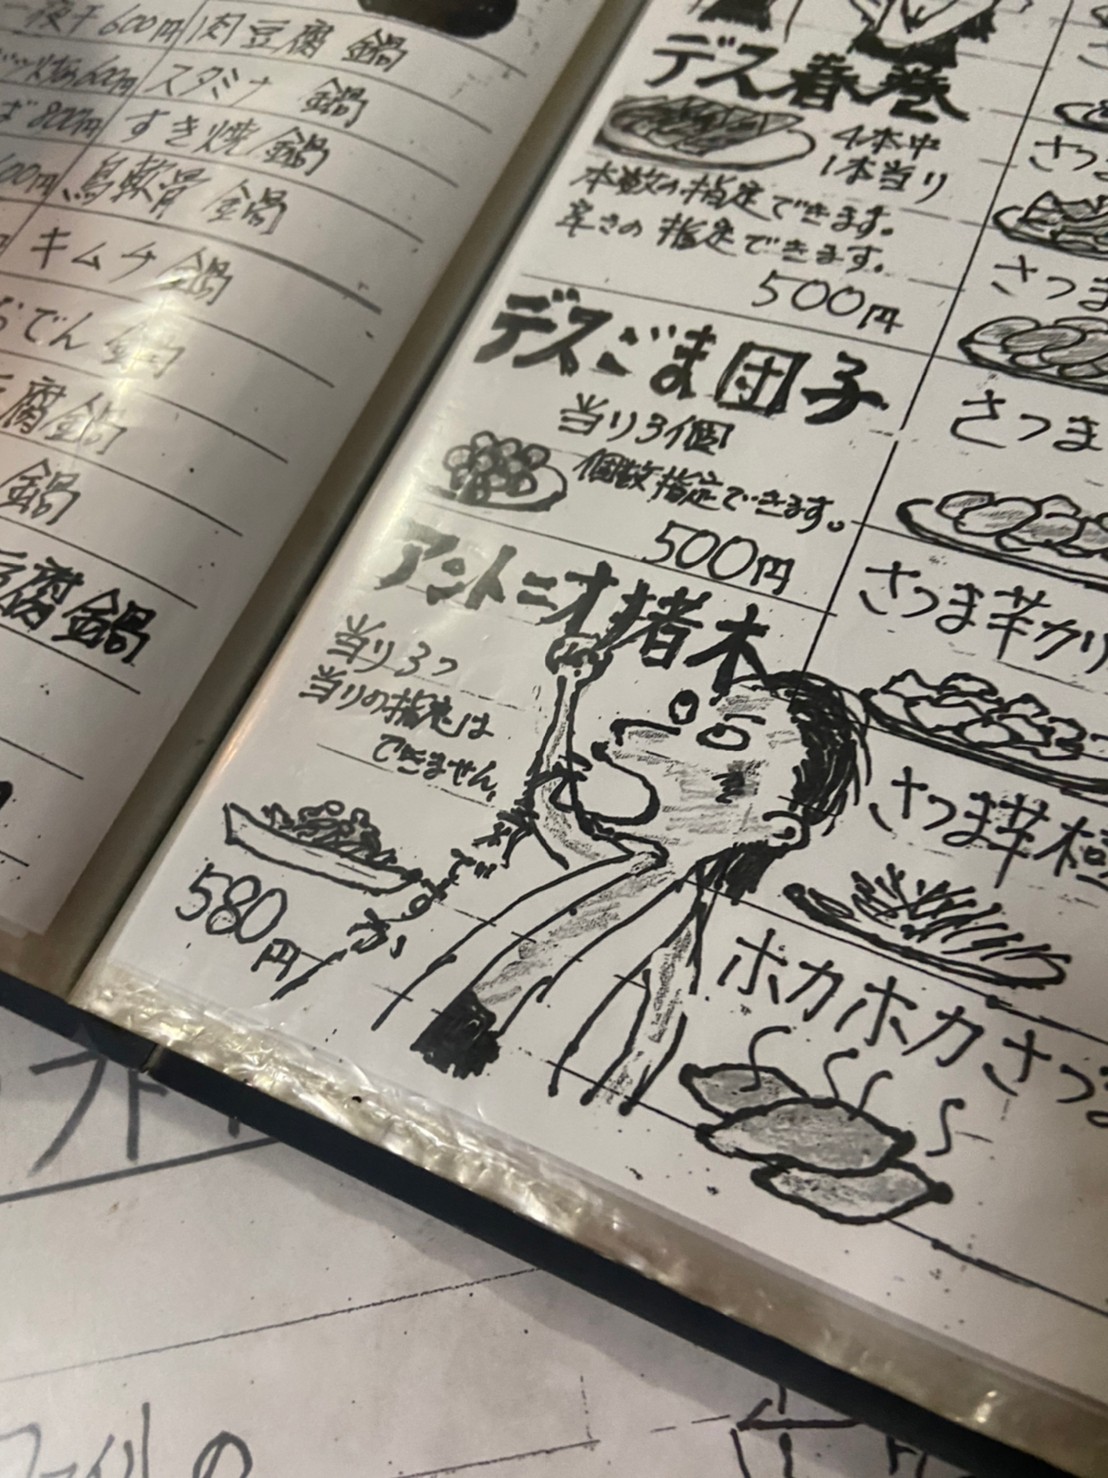 一夜干 600円
肉豆腐 鍋
スタミナ 鍋
800円
すき焼 鍋
鳥軟骨 鍋
キムチ 鍋
おでん 鍋
腐鍋
鍋
豆腐鍋
デス春巻
4本中
1本当り
本数の指定できます。
辛さの指定できます。
500円
デスごま団子
当り3個
個数指定できます。
500円
アントニオ猪木
当り3つ
当りの指定は
できません。
元気ですかー
580円
さつま
さつま
さつま
さつま芋カリ
さつま芋
ホカホカさつま